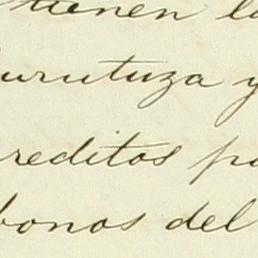 tienen la
urutuza y
reditos po
bonos del